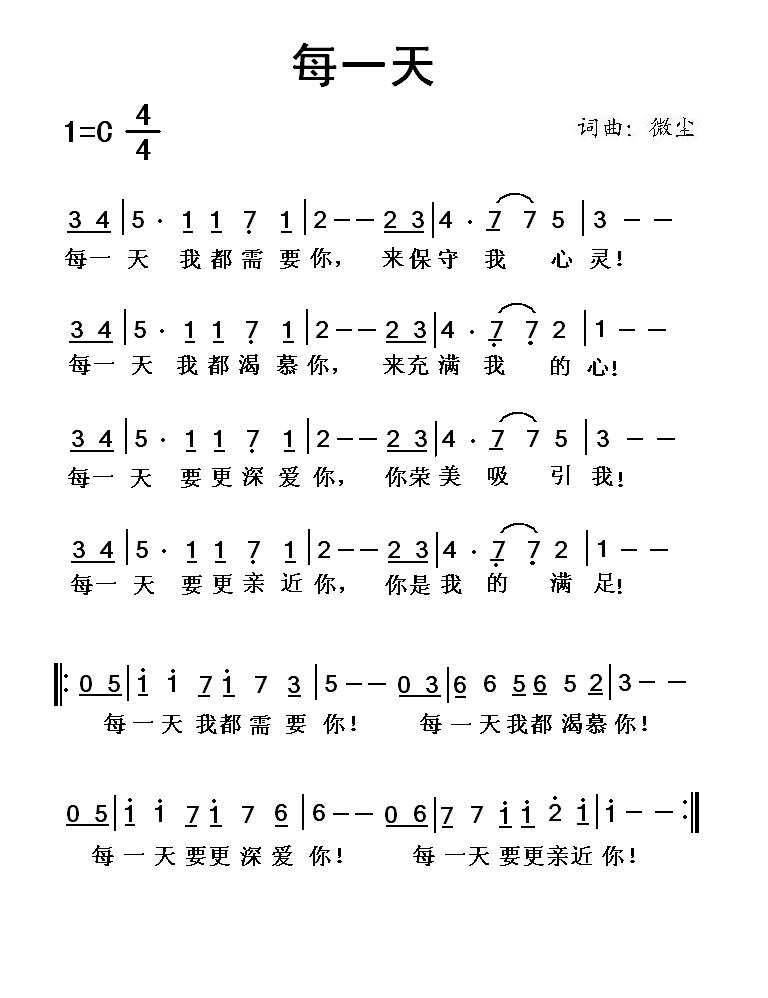 每一天
1=C 4/4
词曲：微尘
3 4 | 5 · 1 1 7 1 | 2 — — 2 3 | 4 · 7 7 5 | 3 — —
每一 天 我都需要你， 来保守 我 心 灵！
3 4 | 5 · 1 1 7 1 | 2 — — 2 3 | 4 · 7 7 2 | 1 — —
每一 天 我都渴慕你， 来充满 我 的 心！
3 4 | 5 · 1 1 7 1 | 2 — — 2 3 | 4 · 7 7 5 | 3 — —
每一 天 要更深爱你， 你荣美 吸 引 我！
3 4 | 5 · 1 1 7 1 | 2 — — 2 3 | 4 · 7 7 2 | 1 — —
每一 天 要更亲近你， 你是我 的 满 足！
‖: 0 5 | 1 1 7 1 7 3 | 5 — — 0 3 | 6 6 5 6 5 2 | 3 — —
每一天 我都需要 你！ 每一天我都渴慕你！
0 5 | 1 1 7 1 7 6 | 6 — — 0 6 | 7 7 1 1 2 1 | 1 — — :‖
每一天要更深爱 你！ 每一天要更亲近你！